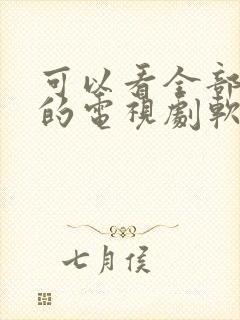 可以看全部
的電視劇軟
七月侯